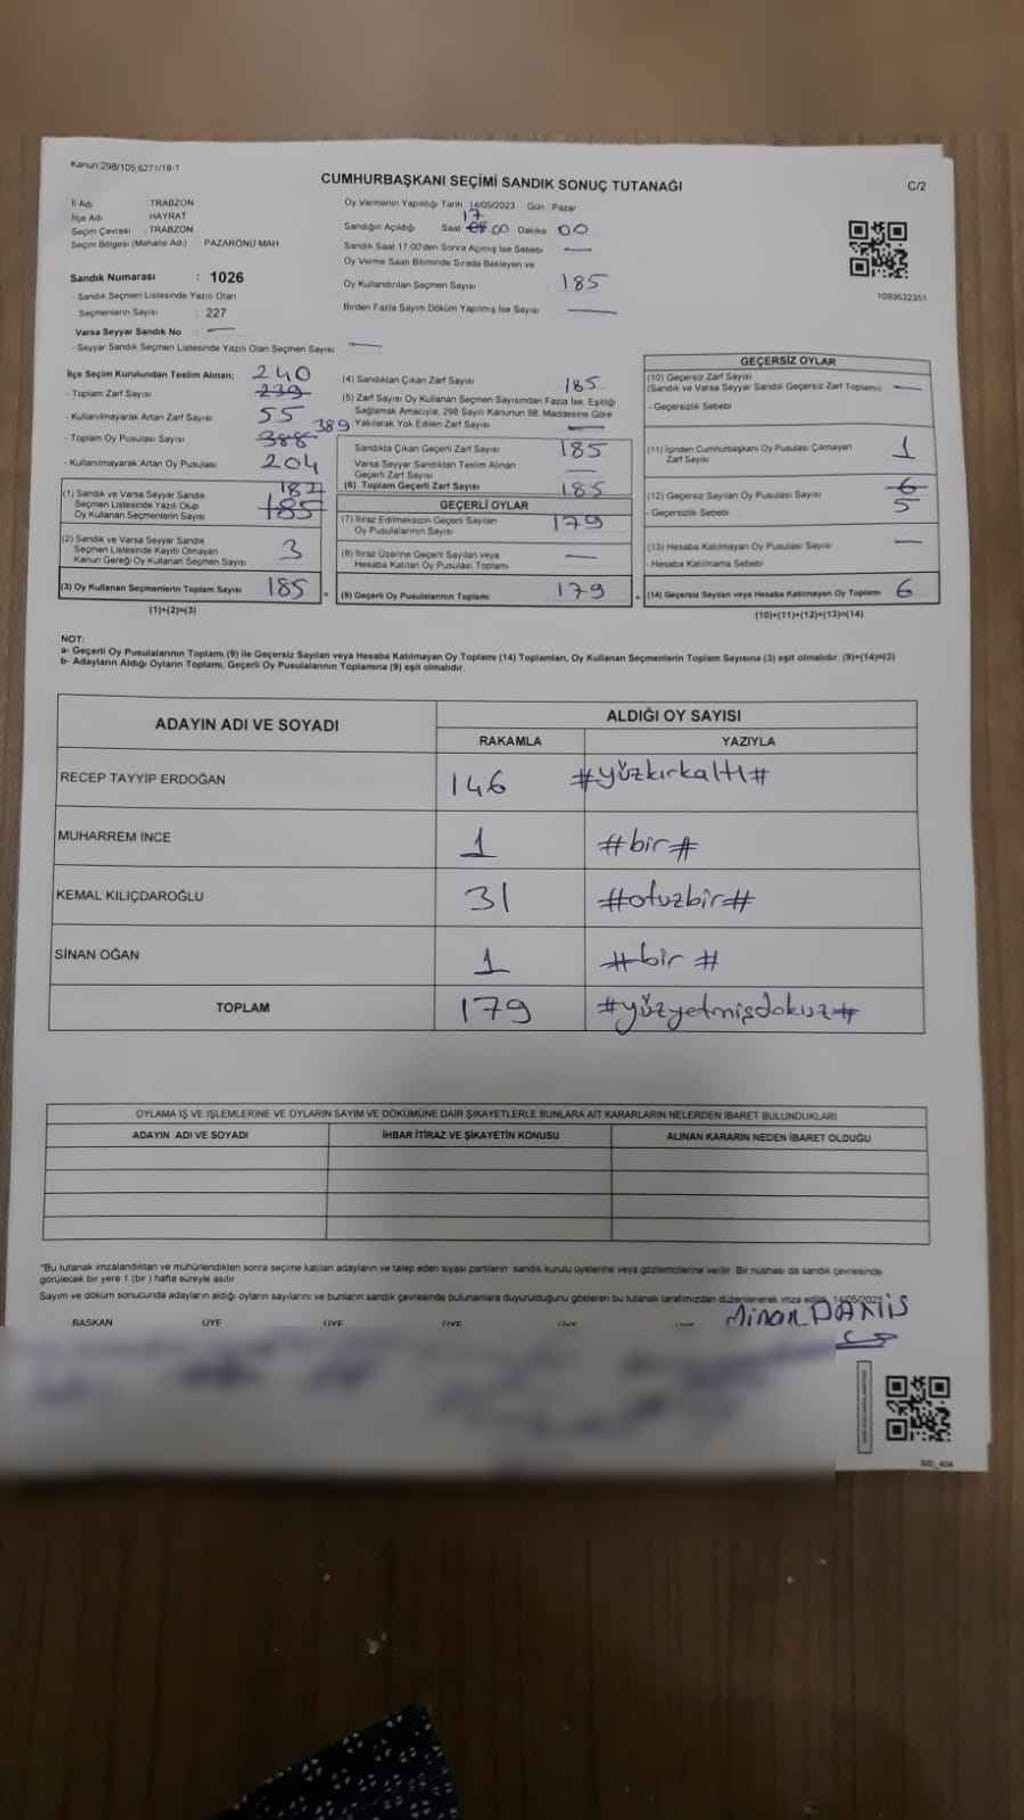 Kanun:298/105,6271/19-1
CUMHURBAŞKANI SEÇİMİ SANDIK SONUÇ TUTANAĞI
C/2
İl Adı TRABZON
İlçe Adı HAYRAT
Seçim Çevresi : TRABZON
Seçim Bölgesi (Mahalle Adı) PAZARÖNÜ MAH
Sandık Numarası : 1026
- Sandık Seçmen Listesinde Yazılı Olan
Seçmenlerin Sayısı : 227
Varsa Seyyar Sandık No : —
- Seyyar Sandık Seçmen Listesinde Yazılı Olan Seçmen Sayısı —
Oy Vermenin Yapıldığı Tarih 14/05/2023 Gün : Pazar
17
Sandığın Açıldığı Saat 00 Dakika 00
Sandık Saat 17.00'den Sonra Açılmış İse Sebebi —
Oy Verme Saati Bitiminde Sırada Bekleyen ve
Oy Kullandırılan Seçmen Sayısı 185
Birden Fazla Sayım Döküm Yapılmış İse Sayısı —
1093632351
İlçe Seçim Kurulundan Teslim Alınan; 240
- Toplam Zarf Sayısı 239
- Kullanılmayarak Artan Zarf Sayısı 55
389
- Toplam Oy Pusulası Sayısı 388
- Kullanılmayarak Artan Oy Pusulası 204
182
(1) Sandık ve Varsa Seyyar Sandık
Seçmen Listesinde Yazılı Olup
Oy Kullanan Seçmenlerin Sayısı 185
(2) Sandık ve Varsa Seyyar Sandık
Seçmen Listesinde Kayıtlı Olmayan
Kanun Gereği Oy Kullanan Seçmen Sayısı 3
(3) Oy Kullanan Seçmenlerin Toplam Sayısı 185
(1)+(2)=(3)
(4) Sandıktan Çıkan Zarf Sayısı 185
(5) Zarf Sayısı Oy Kullanan Seçmen Sayısından Fazla İse, Eşitliği
Sağlamak Amacıyla, 298 Sayılı Kanunun 98. Maddesine Göre
Yakılarak Yok Edilen Zarf Sayısı —
Sandıkta Çıkan Geçerli Zarf Sayısı 185
Varsa Seyyar Sandıktan Teslim Alınan
Geçerli Zarf Sayısı —
(6) Toplam Geçerli Zarf Sayısı 185
GEÇERLİ OYLAR
(7) İtiraz Edilmeksizin Geçerli Sayılan
Oy Pusulalarının Sayısı 179
(8) İtiraz Üzerine Geçerli Sayılan veya
Hesaba Katılan Oy Pusulası Toplamı —
= (9) Geçerli Oy Pusulalarının Toplamı 179
GEÇERSİZ OYLAR
(10) Geçersiz Zarf Sayısı
(Sandık ve Varsa Seyyar Sandık Geçersiz Zarf Toplamı) —
- Geçersizlik Sebebi
(11) İçinden Cumhurbaşkanı Oy Pusulası Çıkmayan
Zarf Sayısı 1
6
(12) Geçersiz Sayılan Oy Pusulası Sayısı 5
- Geçersizlik Sebebi
(13) Hesaba Katılmayan Oy Pusulası Sayısı —
- Hesaba Katılmama Sebebi
+ (14) Geçersiz Sayılan veya Hesaba Katılmayan Oy Toplamı 6
(10)+(11)+(12)+(13)=(14)
NOT:
a- Geçerli Oy Pusulalarının Toplamı (9) ile Geçersiz Sayılan veya Hesaba Katılmayan Oy Toplamı (14) Toplamları, Oy Kullanan Seçmenlerin Toplam Sayısına (3) eşit olmalıdır. (9)+(14)=(3)
b- Adayların Aldığı Oyların Toplamı, Geçerli Oy Pusulalarının Toplamına (9) eşit olmalıdır.
ADAYIN ADI VE SOYADI ALDIĞI OY SAYISI
RAKAMLA YAZIYLA
RECEP TAYYİP ERDOĞAN 146 #yüzkırkaltı#
MUHARREM İNCE 1 #bir#
KEMAL KILIÇDAROĞLU 31 #otuzbir#
SİNAN OĞAN 1 #bir#
TOPLAM 179 #yüzyetmişdokuz#
OYLAMA İŞ VE İŞLEMLERİNE VE OYLARIN SAYIM VE DÖKÜMÜNE DAİR ŞİKAYETLERLE BUNLARA AİT KARARLARIN NELERDEN İBARET BULUNDUKLARI
ADAYIN ADI VE SOYADI İHBAR İTİRAZ VE ŞİKAYETİN KONUSU ALINAN KARARIN NEDEN İBARET OLDUĞU
"Bu tutanak imzalandıktan ve mühürlendikten sonra seçime katılan adayların ve talep eden siyasi partilerin sandık kurulu üyelerine veya gözlemcilerine verilir. Bir nüshası da sandık çevresinde
görülecek bir yere 1 (bir ) hafta süreyle asılır.
Sayım ve döküm sonucunda adayların aldığı oyların sayılarını ve bunların sandık çevresinde bulunanlara duyurulduğunu gösteren bu tutanak tarafımızdan düzenlenerek imza edildi. 14/05/2023
BAŞKAN ÜYE ÜYE ÜYE ÜYE ÜYE